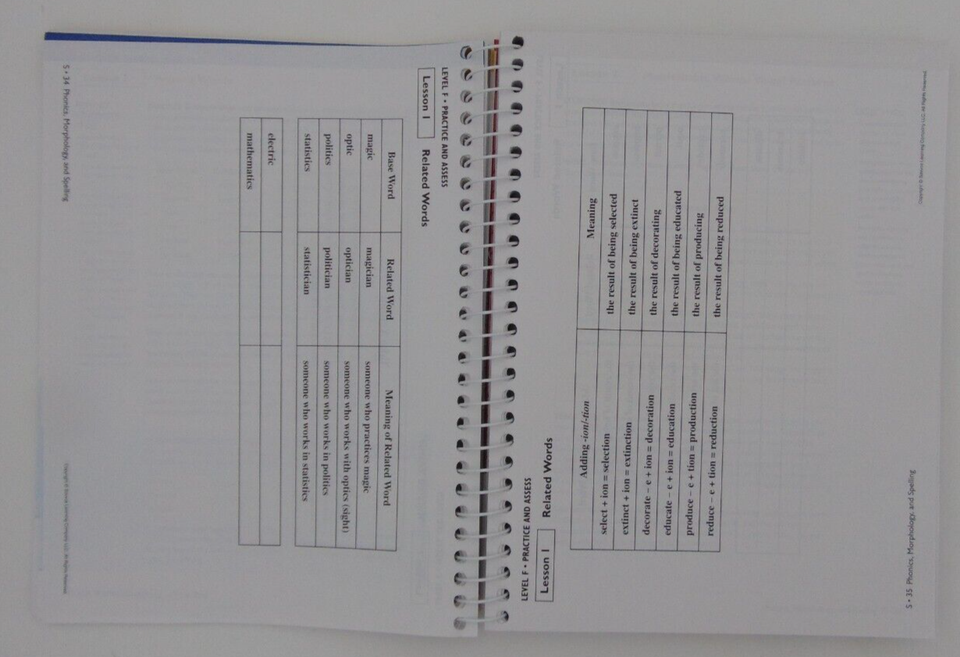 LEVEL F • PRACTICE AND ASSESS
Lesson 1 Related Words
Base Word Related Word Meaning of Related Word
magic magician someone who practices magic
optic optician someone who works with optics (sight)
politics politician someone who works in politics
statistics statistician someone who works in statistics
electric
mathematics
5 • 34 Phonics, Morphology, and Spelling
LEVEL F • PRACTICE AND ASSESS
Lesson 1 Related Words
Adding -ion/-tion Meaning
select + ion = selection the result of being selected
extinct + ion = extinction the result of being extinct
decorate – e + ion = decoration the result of decorating
educate – e + ion = education the result of being educated
produce – e + tion = production the result of producing
reduce – e + tion = reduction the result of being reduced
5 • 35 Phonics, Morphology, and Spelling